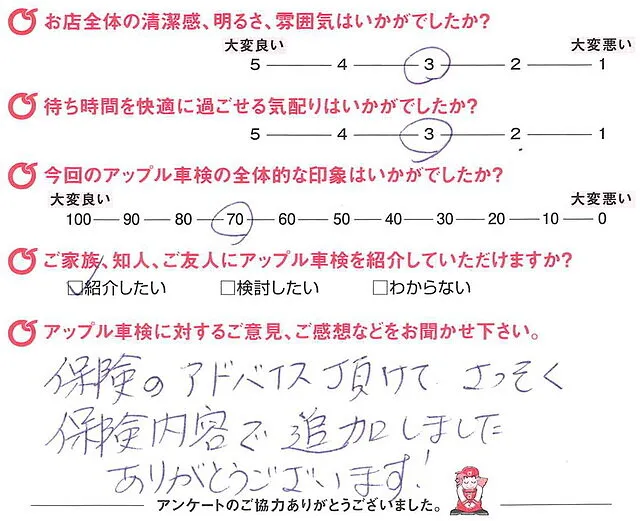 お店全体の清潔感、明るさ、雰囲気はいかがでしたか?
大変良い 大変悪い
5 4 3 2 1
待ち時間を快適に過ごせる気配りはいかがでしたか?
5 4 3 2 1
今回のアップル車検の全体的な印象はいかがでしたか?
大変良い 大変悪い
100 90 80 70 60 50 40 30 20 10 0
ご家族、知人、ご友人にアップル車検を紹介していただけますか?
紹介したい 検討したい わからない
アップル車検に対するご意見、ご感想などをお聞かせ下さい。
保険のアドバイス頂けて さっそく
保険内容で追加しました
ありがとうございます!
アンケートのご協力ありがとうございました。